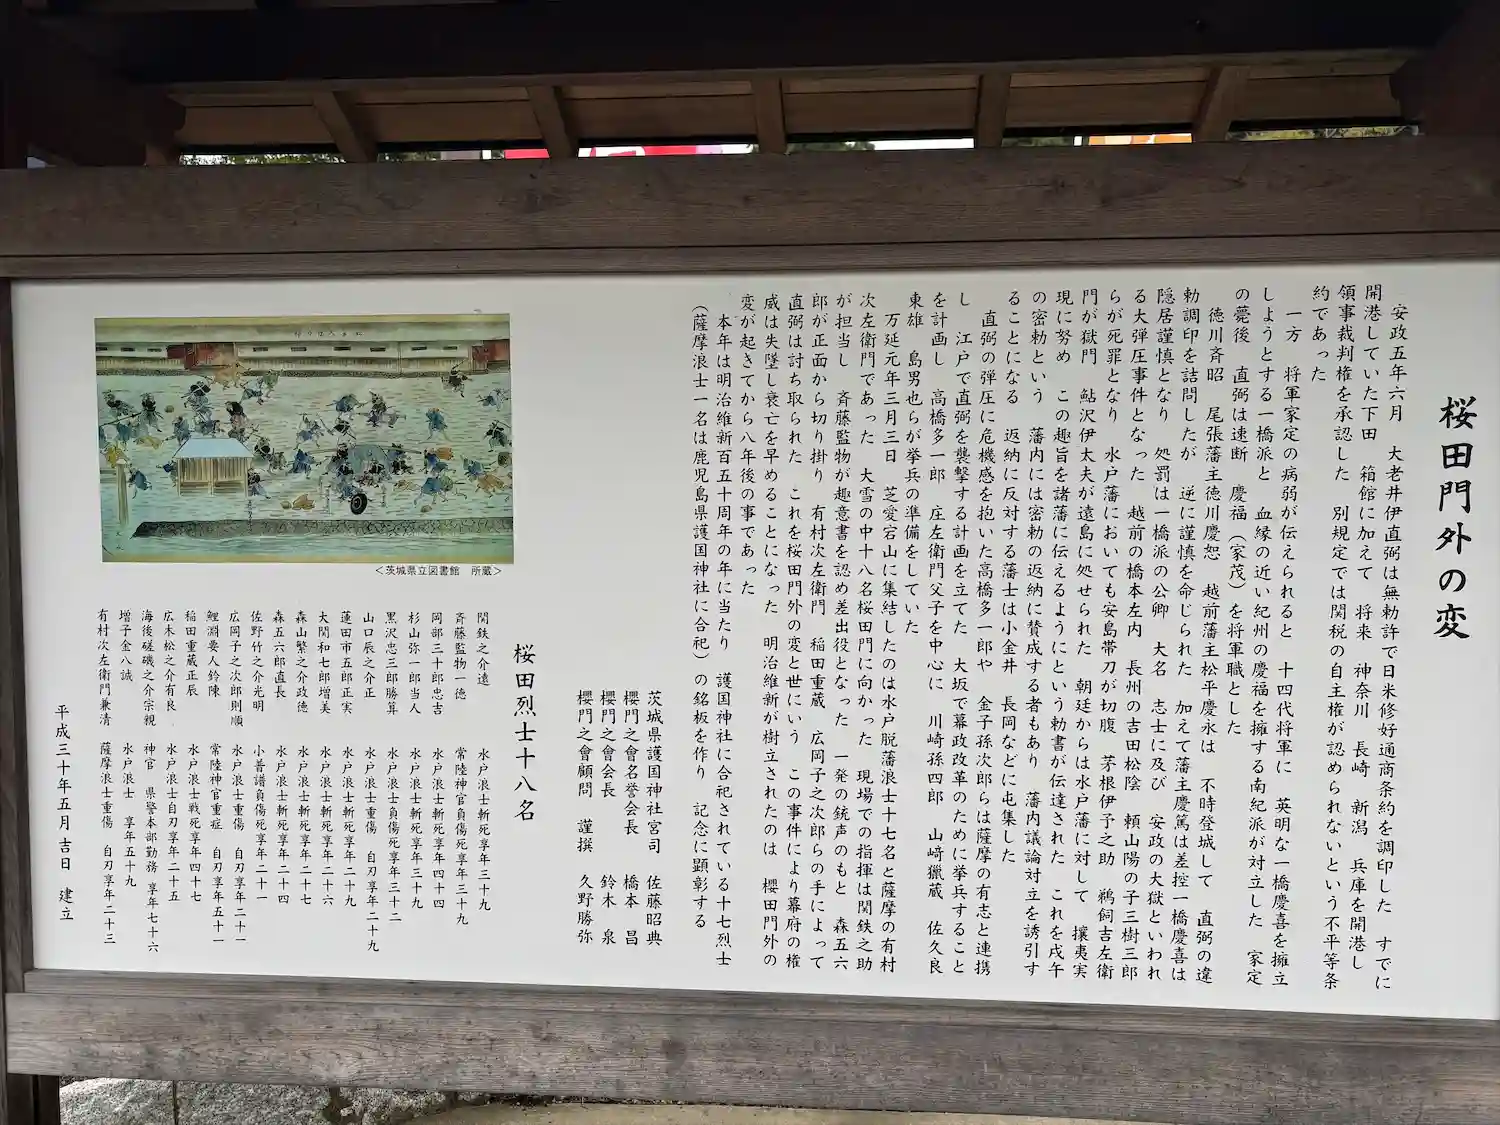 桜田門外の変
安政五年六月　大老井伊直弼は無勅許で日米修好通商条約を調印した　すでに
開港していた下田　箱館に加えて　将来　神奈川　長崎　新潟　兵庫を開港し
領事裁判権を承認した　別規定では関税の自主権が認められないという不平等条
約であった
一方　将軍家定の病弱が伝えられると　十四代将軍に　英明な一橋慶喜を擁立
しようとする一橋派と　血縁の近い紀州の慶福を擁する南紀派が対立した　家定
の薨後　直弼は速断　慶福（家茂）を将軍職とした
徳川斉昭　尾張藩主徳川慶恕　越前藩主松平慶永は　不時登城して　直弼の違
勅調印を詰問したが　逆に謹慎を命じられた　加えて藩主慶篤は差控一橋慶喜は
隠居謹慎となり　処罰は一橋派の公卿　大名　志士に及び　安政の大獄といわれ
る大弾圧事件となった　越前の橋本左内　長州の吉田松陰　頼山陽の子三樹三郎
らが死罪となり　水戸藩においても安島帯刀が切腹　茅根伊予之助　鵜飼吉左衛
門が獄門　鮎沢伊太夫が遠島に処せられた　朝廷からは水戸藩に対して　攘夷実
現に努め　この趣旨を諸藩に伝えるようにという勅書が伝達された　これを戊午
の密勅という　藩内には密勅の返納に賛成する者もあり　藩内議論対立を誘引す
ることになる　返納に反対する藩士は小金井　長岡などに屯集した
直弼の弾圧に危機感を抱いた高橋多一郎や　金子孫次郎らは薩摩の有志と連携
し　江戸で直弼を襲撃する計画を立てた　大坂で幕政改革のために挙兵すること
を計画し　高橋多一郎　庄左衛門父子を中心に　川崎孫四郎　山﨑獵蔵　佐久良
東雄　島男也らが挙兵の準備をしていた
万延元年三月三日　芝愛宕山に集結したのは水戸脱藩浪士十七名と薩摩の有村
次左衛門であった　大雪の中十八名桜田門に向かった　現場での指揮は関鉄之助
が担当し　斉藤監物が趣意書を認め差出役となった　一発の銃声のもと　森五六
郎が正面から切り掛り　有村次左衛門　稲田重蔵　広岡子之次郎らの手によって
直弼は討ち取られた　これを桜田門外の変と世にいう　この事件により幕府の権
威は失墜し衰亡を早めることになった　明治維新が樹立されたのは　櫻田門外の
変が起きてから八年後の事であった
本年は明治維新百五十周年の年に当たり　護国神社に合祀されている十七烈士
（薩摩浪士一名は鹿児島県護国神社に合祀）の銘板を作り　記念に顕彰する
茨城県護国神社宮司　佐藤昭典
櫻門之會名誉会長　橋本　昌
櫻門之會会長　鈴木　泉
櫻門之會顧問　謹撰　久野勝弥
＜茨城県立図書館　所蔵＞
桜田烈士十八名
関鉄之介遠　水戸浪士斬死享年三十九
斉藤監物一徳　常陸神官負傷死享年三十九
岡部三十郎忠吉　水戸浪士斬死享年四十四
杉山弥一郎当人　水戸浪士斬死享年三十九
黒沢忠三郎勝算　水戸浪士負傷死享年三十二
山口辰之介正　水戸浪士重傷　自刃享年二十九
蓮田市五郎正実　水戸浪士斬死享年二十九
大関和七郎増美　水戸浪士斬死享年二十六
森山繁之介政徳　水戸浪士斬死享年二十七
森五六郎直長　水戸浪士斬死享年二十四
佐野竹之介光明　小普請負傷死享年二十一
広岡子之次郎則順　水戸浪士重傷　自刃享年二十一
鯉淵要人鈴陳　常陸神官重症　自刃享年五十一
稲田重蔵正辰　水戸浪士戦死享年四十七
広木松之介有良　水戸浪士自刃享年二十五
海後磋磯之介宗親　神官　県警本部勤務　享年七十六
増子金八誠　水戸浪士　享年五十九
有村次左衛門兼清　薩摩浪士重傷　自刃享年二十三
平成三十年五月吉日　建立